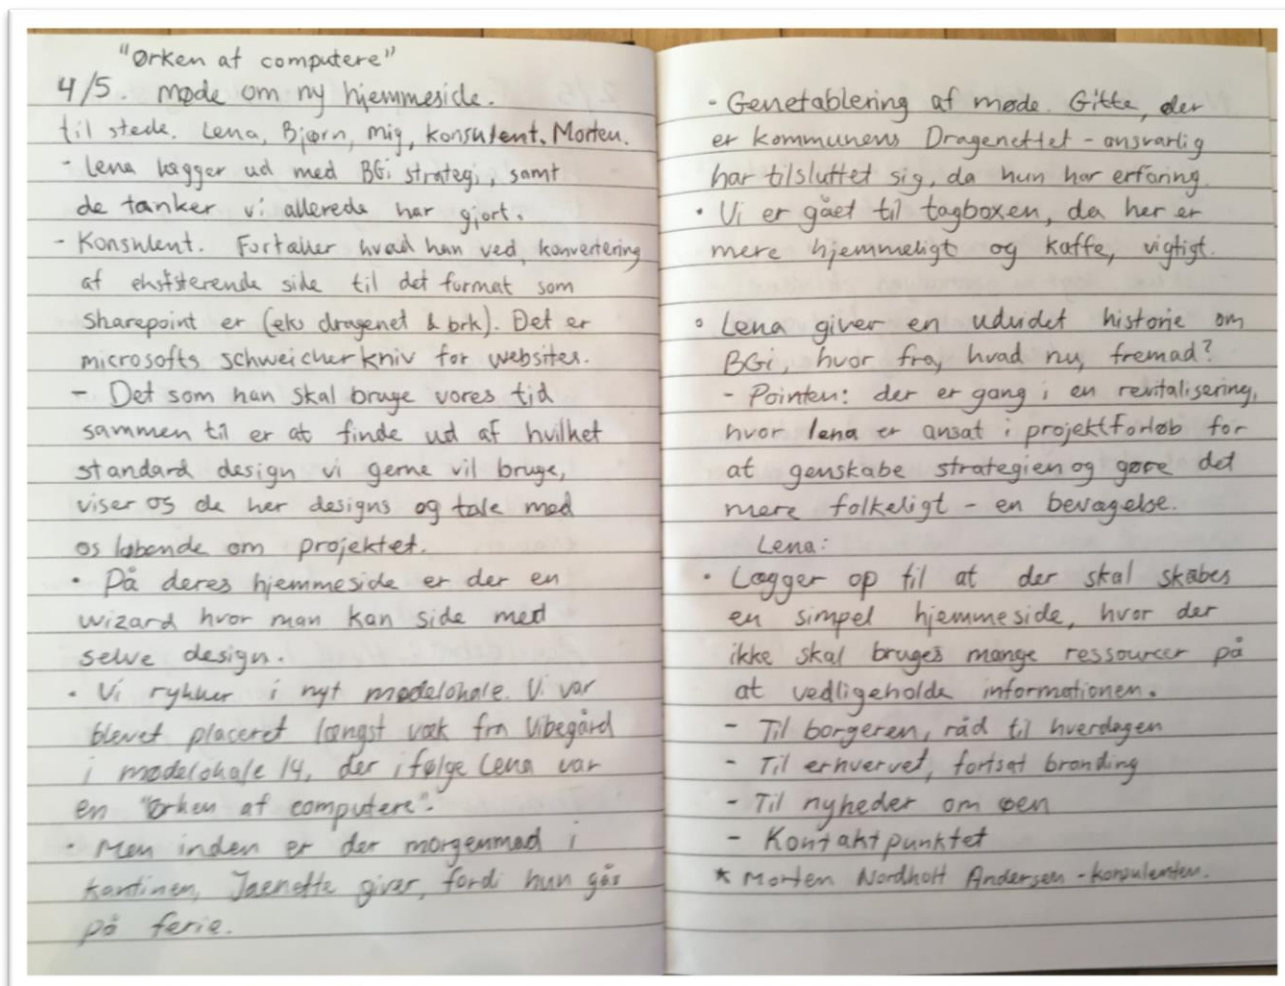 "Ørken af computere"
4/5. møde om ny hjemmeside.
til stede. Lena, Bjørn, mig, konsulent. Morten.
- Lena lægger ud med BGi strategi, samt
de tanker vi allerede har gjort.
- Konsulent. Fortæller hvad han ved, konvertering
af eksisterende side til det format som
Sharepoint er (eks dragenet & brk). Det er
microsofts schweicherkniv for websites.
- Det som han skal bruge vores tid
sammen til er at finde ud af hvilket
standard design vi gerne vil bruge,
viser os de her designs og tale med
os løbende om projektet.
• På deres hjemmeside er der en
wizard hvor man kan side med
selve design.
• Vi rykker i nyt mødelokale. Vi var
blevet placeret længst væk fra Vibegård
i mødelokale 14, der ifølge Lena var
en "ørken af computere".
• Men inden er der morgenmad i
kantinen, Jaenette giver, fordi hun går
på ferie.
- Genetablering af møde. Gitte, der
er kommunens Dragenettet - ansvarlig
har tilsluttet sig, da hun har erfaring.
• Vi er gået til tagboxen, da her er
mere hjemmeligt og kaffe, vigtigt.
• Lena giver en udvidet historie om
BGi, hvor fra, hvad nu, fremad?
- Pointen: der er gang i en revitalisering,
hvor lena er ansat i projektforløb for
at genskabe strategien og gøre det
mere folkeligt - en bevægelse.
Lena:
• Lægger op til at der skal skabes
en simpel hjemmeside, hvor der
ikke skal bruges mange ressourcer på
at vedligeholde informationen.
- Til borgeren, råd til hverdagen
- Til erhvervet, fortsat branding
- Til nyheder om øen
- Kontaktpunktet
* Morten Nordholt Andersen - konsulenten.